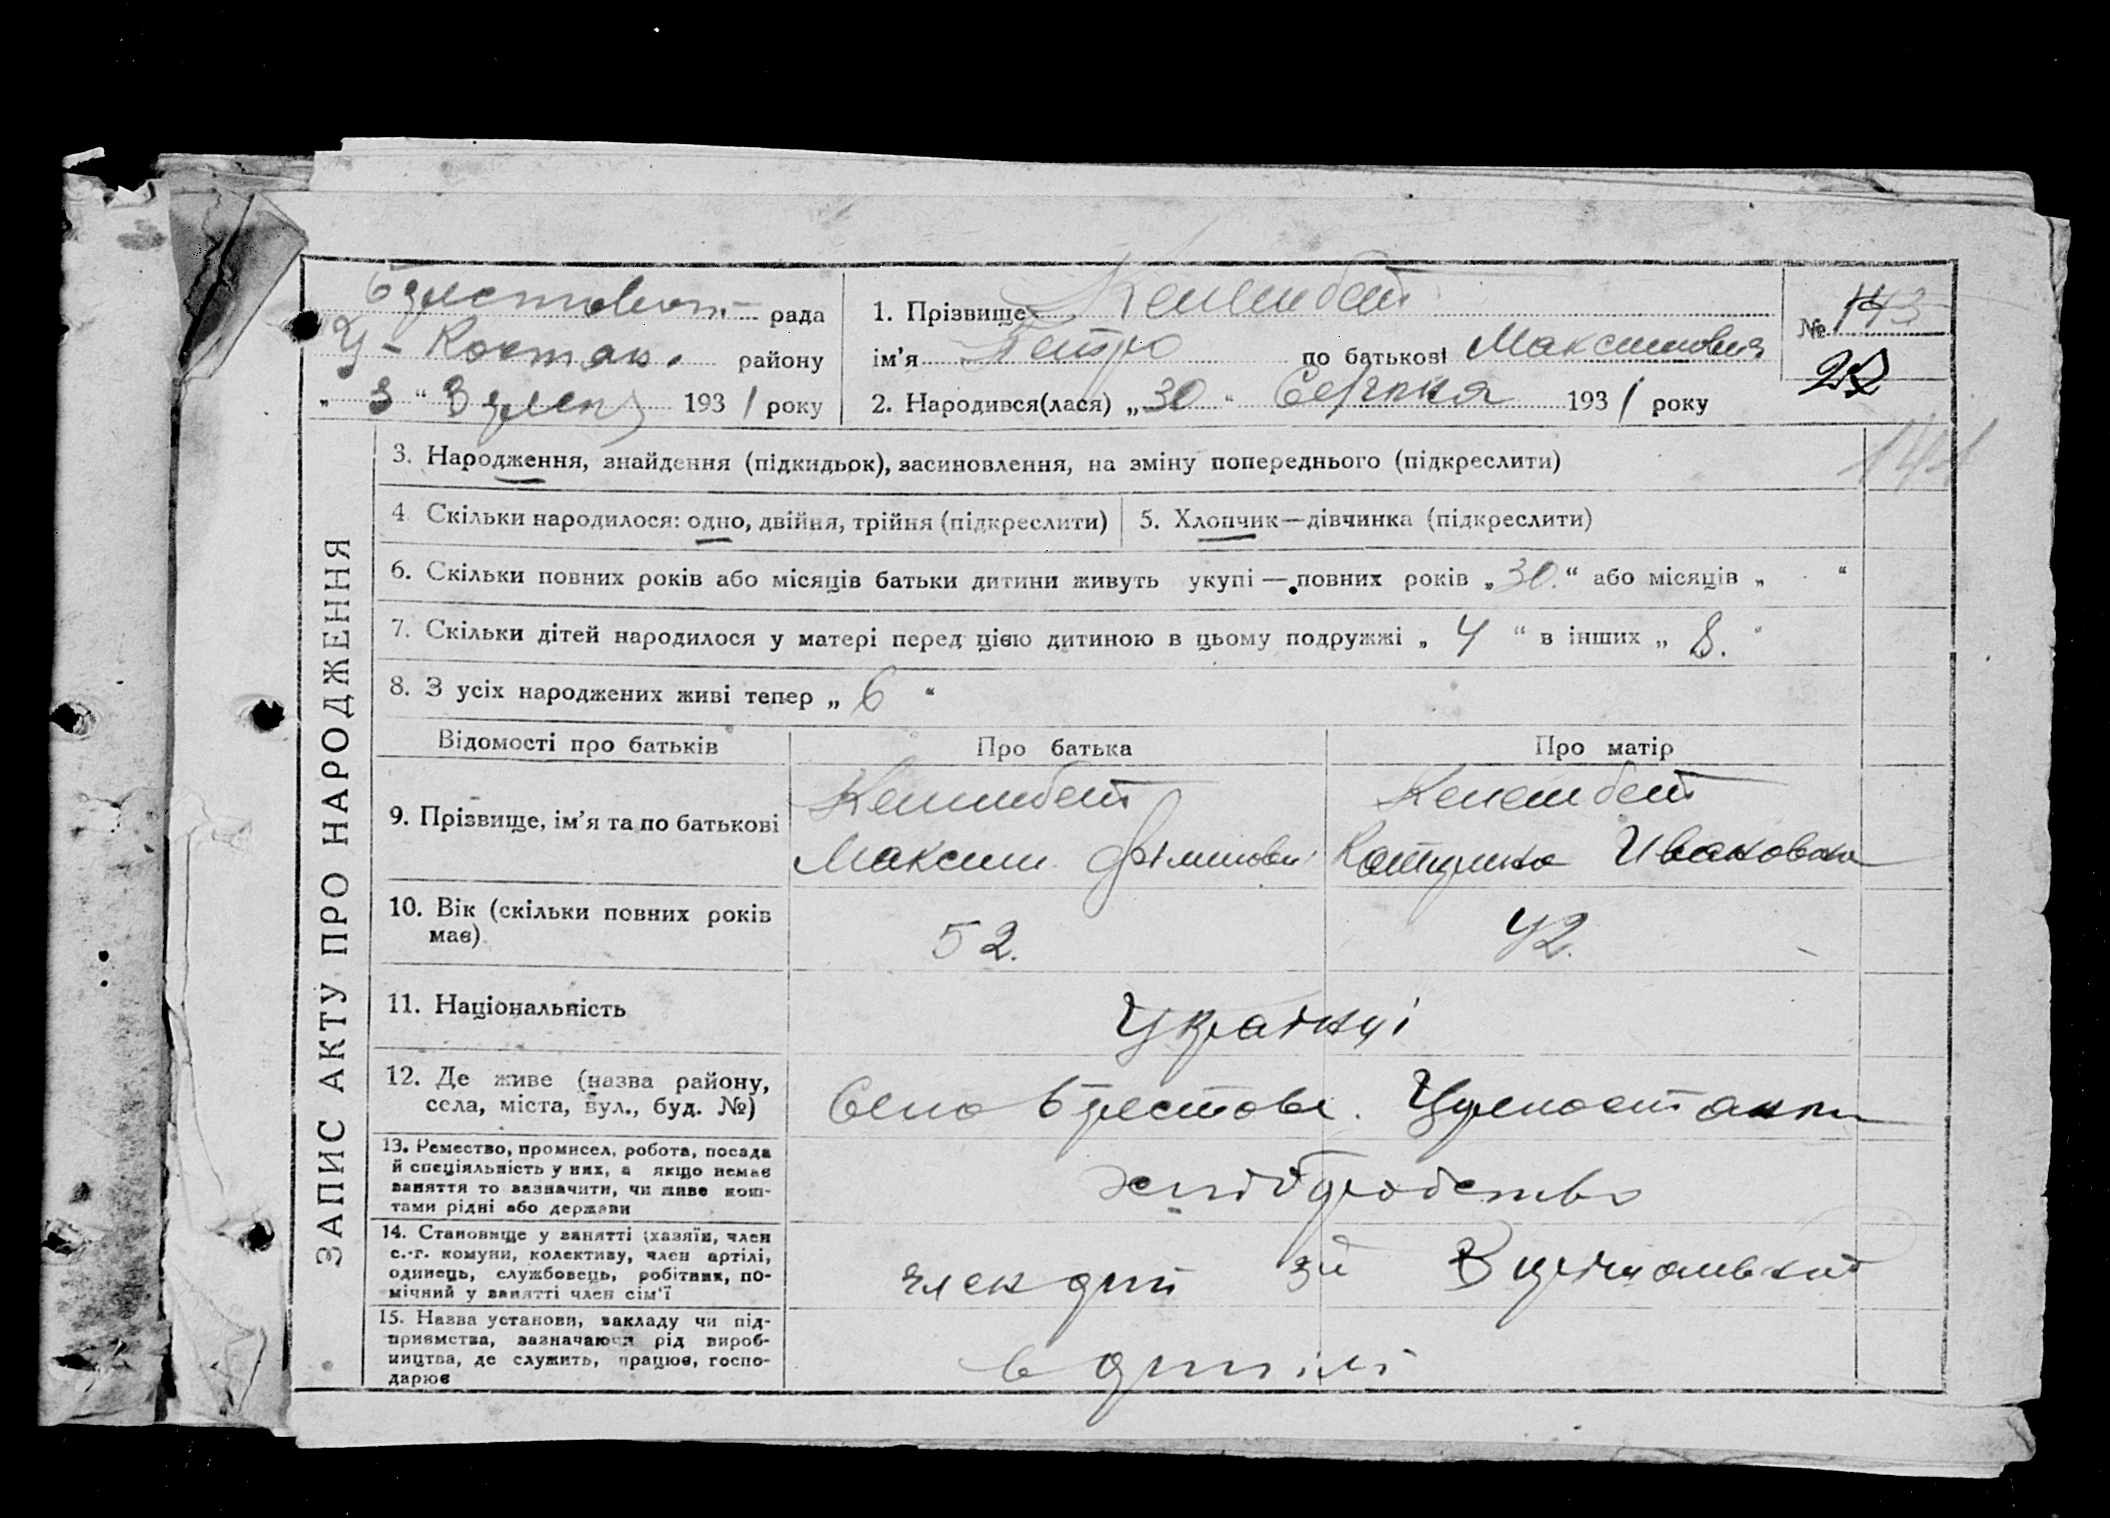 рада
Ц-Костян. району
„ 3 “ Вересня 1931 року
1. Прізвище Келембет
ім’я Петро по батькові Максимович
2. Народився(лася) „30“ Серпня 1931 року
№ 143
ЗАПИС АКТУ ПРО НАРОДЖЕННЯ
3. Народження, знайдення (підкидьок), засиновлення, на зміну попереднього (підкреслити)
4. Скільки народилося: одно, двійня, трійня (підкреслити)
5. Хлопчик—дівчинка (підкреслити)
6. Скільки повних років або місяців батьки дитини живуть укупі—повних років „30.“ або місяців „ “
7. Скільки дітей народилося у матері перед цією дитиною в цьому подружжі „ 4 “ в інших „ 8. “
8. З усіх народжених живі тепер „ 6 “
Відомості про батьків
Про батька
Про матір
9. Прізвище, ім’я та по батькові
Келембет
Максим
Келембет
Ивановна
10. Вік (скільки повних років
має)
52.
42.
11. Національність
Українці
12. Де живе (назва району,
села, міста, вул., буд. №)
Село
13. Ремество, промисел, робота, посада
й спеціяльність у них, а якщо немає
заняття то зазначити, чи живе кош-
тами рідні або держави
хліборобство
14. Становище у занятті (хазяїн, член
с.-г. комуни, колективу, член артілі,
одинець, службовець, робітник, по-
мічний у занятті член сім’ї
член
15. Назва установи, закладу чи під-
приємства, зазначаючи рід вироб-
ництва, де служить, працює, госпо-
дарює
в артілі